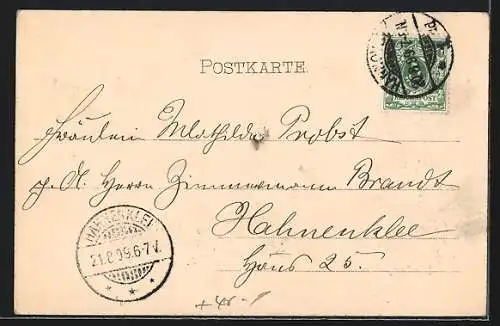 POSTKARTE.
Fräulein Mathilde Probst
p. A. Herrn Zimmermann Brandt
Hahnenklee
Haus 25.
HAHNENKLEE
21.8.99.6-7.V.